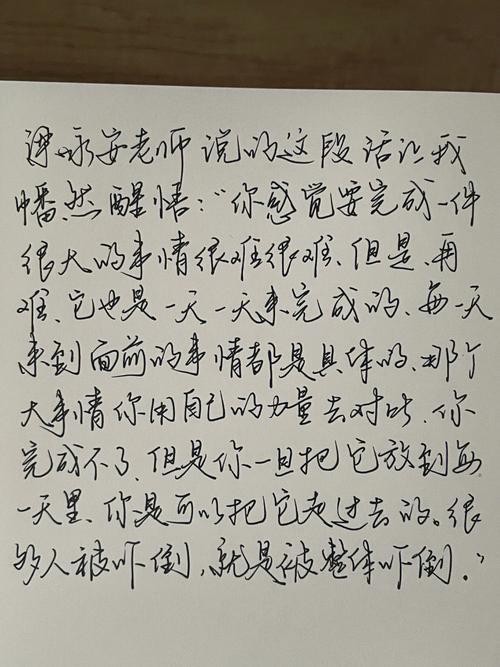 梁永安老师说的这段话让我
幡然醒悟：“你感觉要完成一件
很大的事情很难很难、但是、再
难、它也是一天一天来完成的、每一天
来到面前的事情都是具体的、那个
大事情你用自己的力量去对比、你
完成不了、但是你一旦把它放到每
一天里、你是可以把它走过去的。很
多人被吓倒，就是被整体吓倒。”